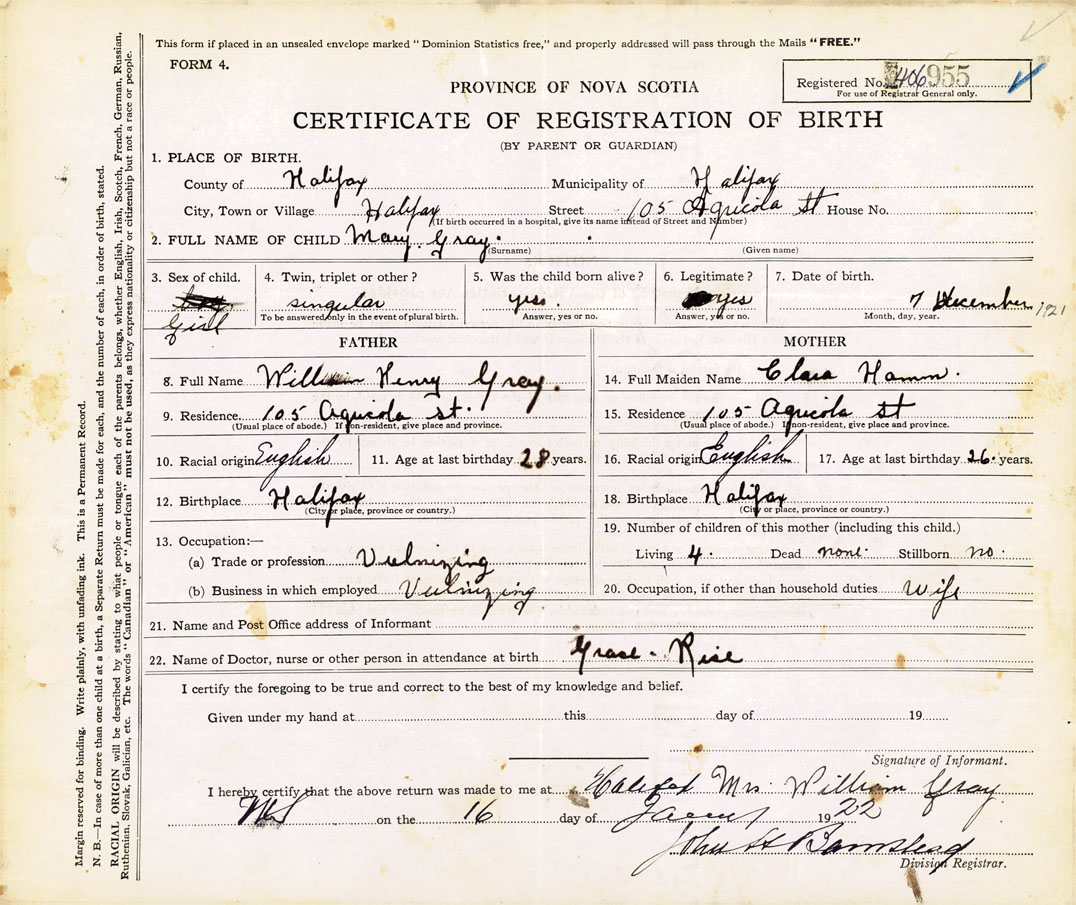 This form if placed in an unsealed envelope marked "Dominion Statistics free," and properly addressed will pass through the Mails "FREE."
FORM 4.
Registered No. 406955
For use of Registrar General only.
PROVINCE OF NOVA SCOTIA
CERTIFICATE OF REGISTRATION OF BIRTH
(BY PARENT OR GUARDIAN)
1. PLACE OF BIRTH.
County of Halifax Municipality of Halifax
City, Town or Village Halifax Street 105 Agricola St House No.
(If birth occurred in a hospital, give its name instead of Street and Number)
2. FULL NAME OF CHILD Mary. Gray.
(Surname) (Given name)
3. Sex of child. 4. Twin, triplet or other? 5. Was the child born alive? 6. Legitimate? 7. Date of birth.
Girl singular yess. yes 7 December 1921
To be answered only in the event of plural birth. Answer, yes or no. Answer, yes or no. Month, day, year.
FATHER MOTHER
8. Full Name William Henry Gray. 14. Full Maiden Name Clara Hamm.
9. Residence. 105 Agricola st. 15. Residence 105 Agricola St
(Usual place of abode.) If non-resident, give place and province. (Usual place of abode.) If non-resident, give place and province.
10. Racial origin English 11. Age at last birthday 28 years. 16. Racial origin English 17. Age at last birthday 26. years.
12. Birthplace Halifax 18. Birthplace Halifax
(City or place, province or country.) (City or place, province or country.)
13. Occupation:— 19. Number of children of this mother (including this child.)
(a) Trade or profession Vulnizing Living 4. Dead none. Stillborn no.
(b) Business in which employed Vulnizing 20. Occupation, if other than household duties Wife
21. Name and Post Office address of Informant
22. Name of Doctor, nurse or other person in attendance at birth Grase - Rise
I certify the foregoing to be true and correct to the best of my knowledge and belief.
Given under my hand at this day of 19
Signature of Informant.
I hereby certify that the above return was made to me at Halifax Mrs William Gray
on the 16 day of 1922
John H Barnstead
Division Registrar.
Margin reserved for binding. Write plainly, with unfading ink. This is a Permanent Record.
N. B.—In case of more than one child at a birth, a Separate Return must be made for each, and the number of each, in order of birth, stated.
RACIAL ORIGIN will be described by stating to what people or tongue each of the parents belongs, whether English, Irish, Scotch, French, German, Russian,
Ruthenian, Slovak, Galician, etc. The words "Canadian" or "American" must not be used, as they express nationality or citizenship but not a race or people.